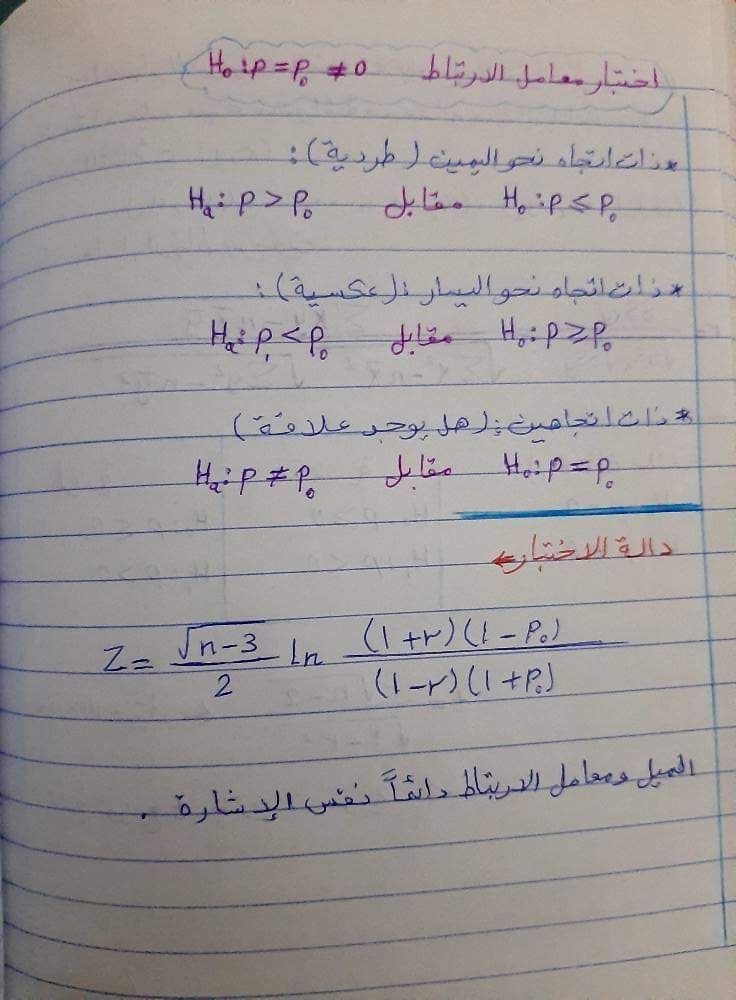 اختبار معامل الارتباط H₀: p = p₀ ≠ 0
* ذات اتجاه نحو اليمين (طردية):
H₀: p ≤ p₀ مقابل Hₐ: p > p₀
* ذات اتجاه نحو اليسار: (عكسية):
H₀: p ≥ p₀ مقابل Hₐ: p < p₀
* ذات اتجاهين: (هل يوجد علاقة)
H₀: p = p₀ مقابل Hₐ: p ≠ p₀
دالة الاختبار ←
Z = √(n-3) / 2 ln (1+r)(1-p₀) / (1-r)(1+p₀)
الميل ومعامل الارتباط دائماً نفس الإشارة .